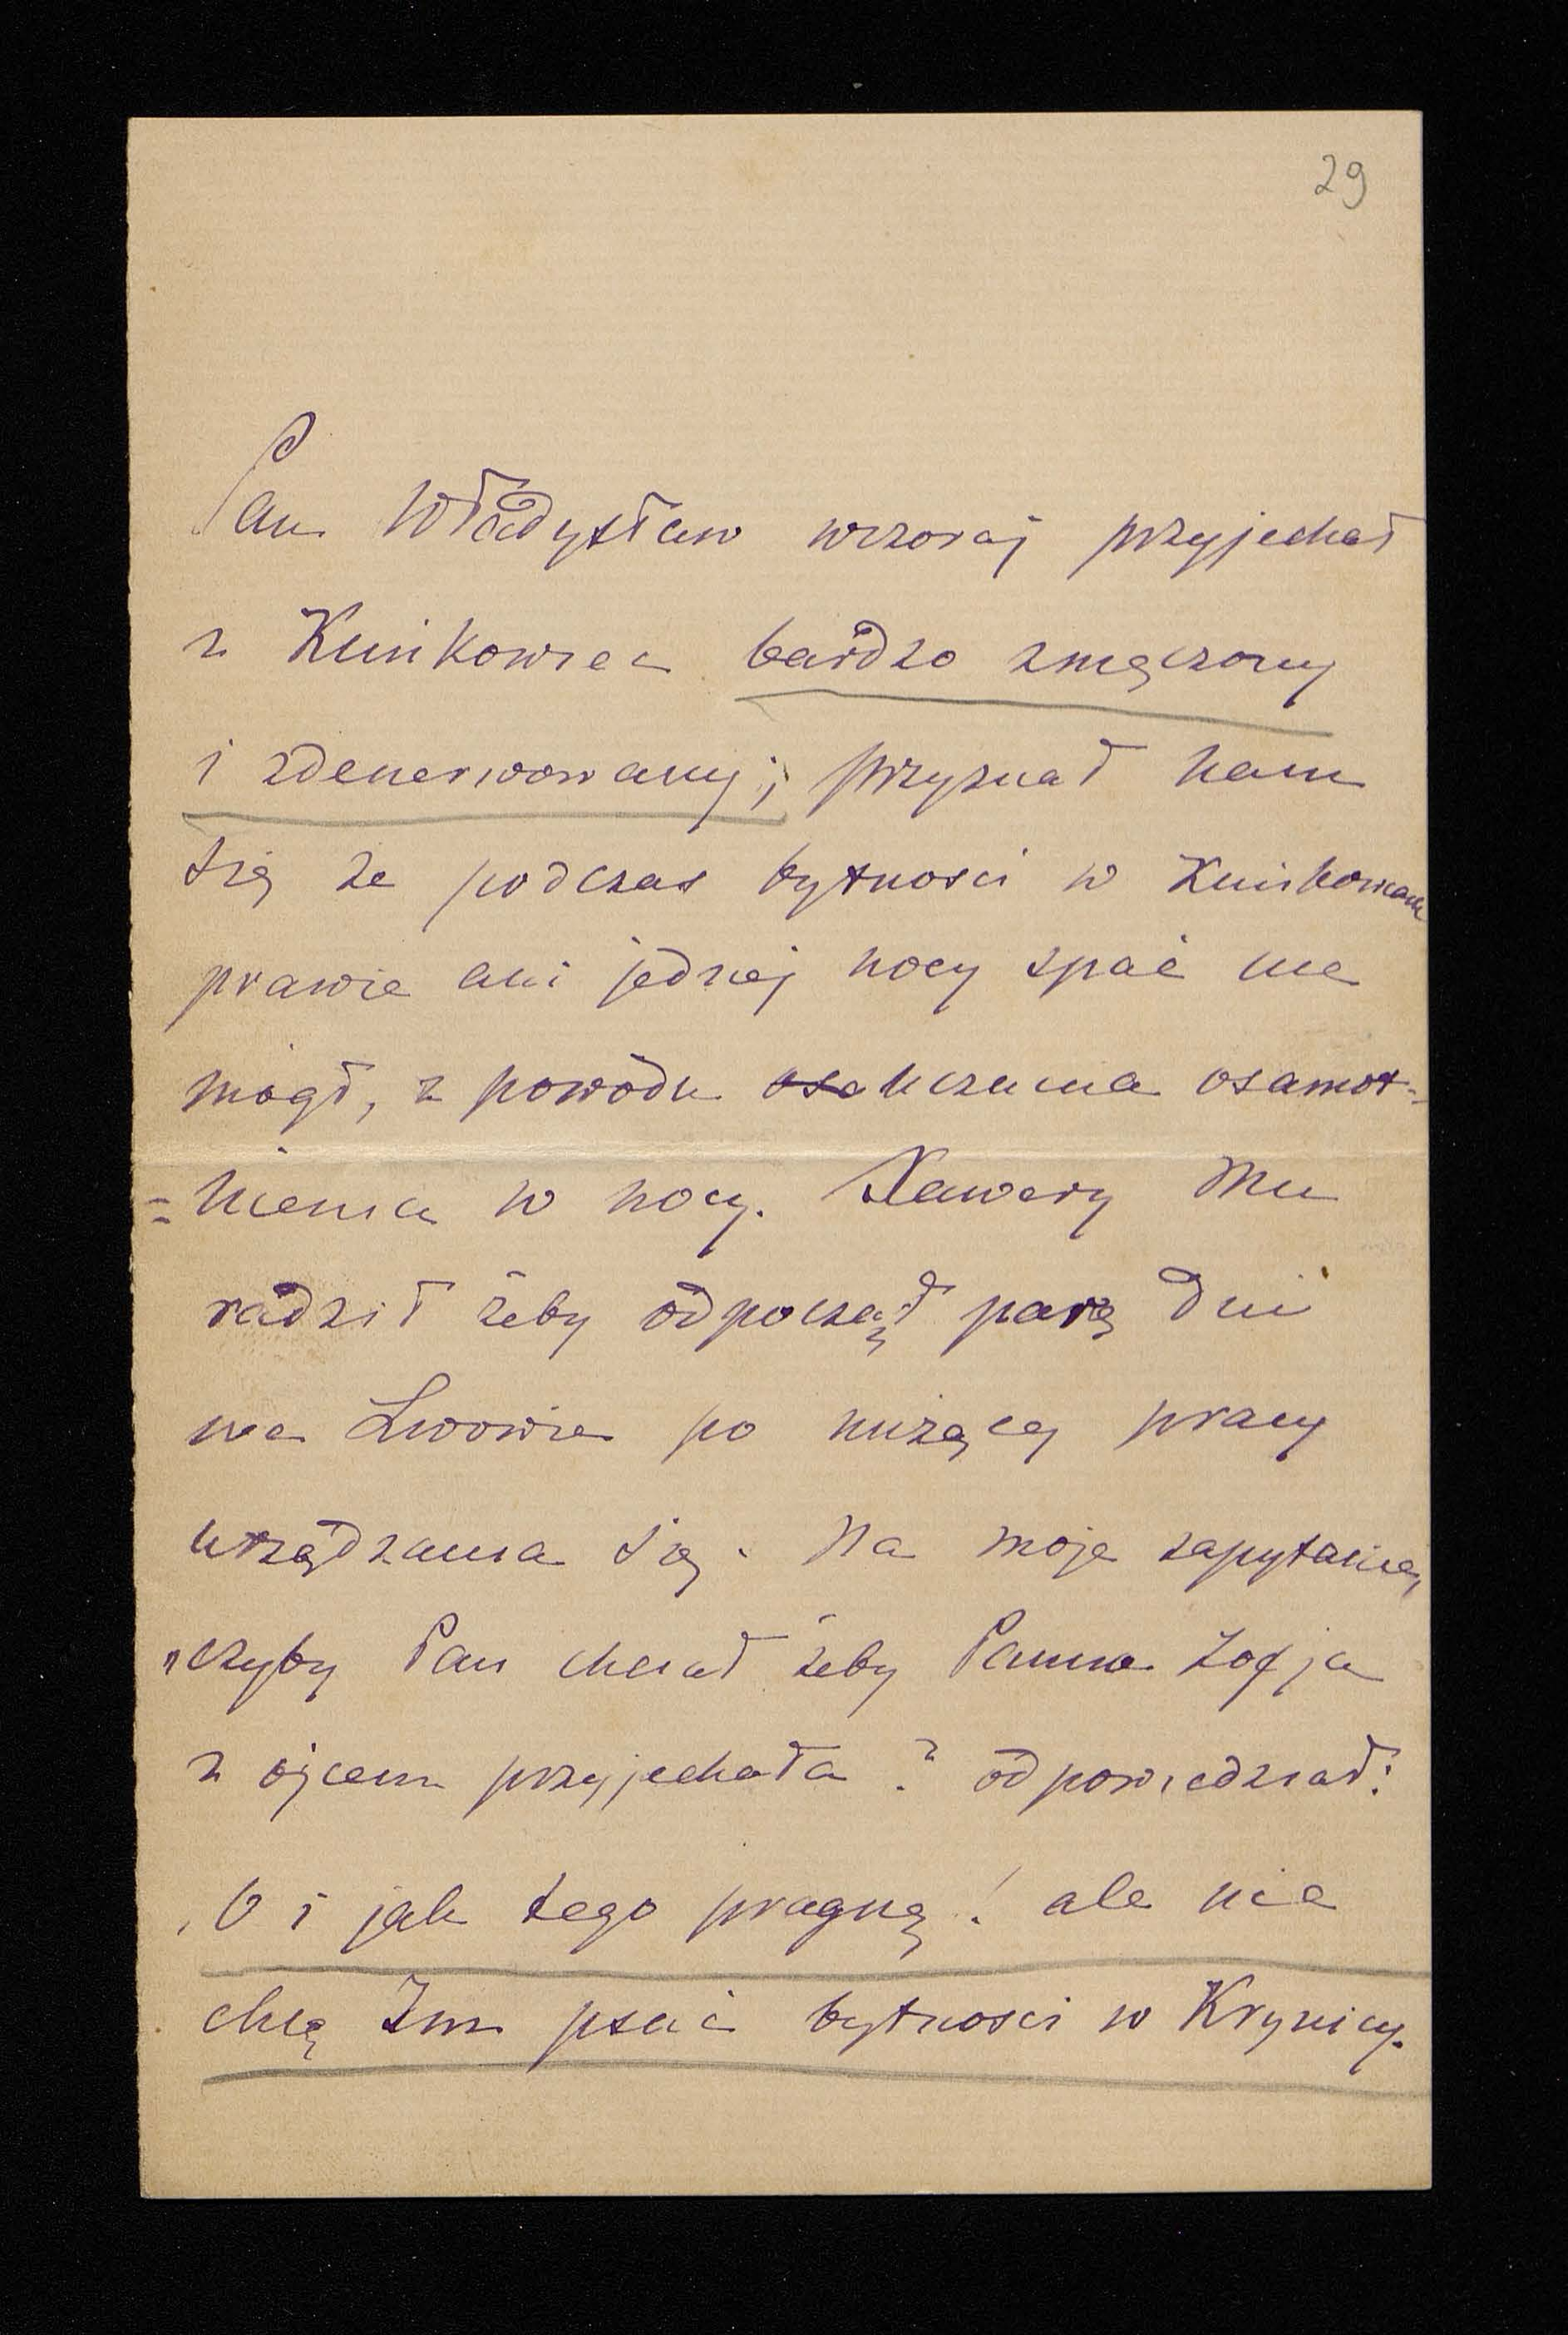 29
Pan Władysław wczoraj przyjechał
z Kuńkowiec bardzo zmęczony
i zdenerwowany; przyznał nam
się że podczas bytności w Kuńkowcach
prawie ani jednej nocy spać nie
mógł, z powodu uczucia osamot-
=nienia w nocy. Xawery Mu
radził żeby odpoczął parę dni
we Lwowie po nużącej pracy
urządzania się. Na moje zapytanie,
"czyby Pan chciał żeby Panna Zofja
z ojcem przyjechała? odpowiedział:
"O i jak tego pragnę! ale nie
chcę Im psuć bytności w Krynicy.